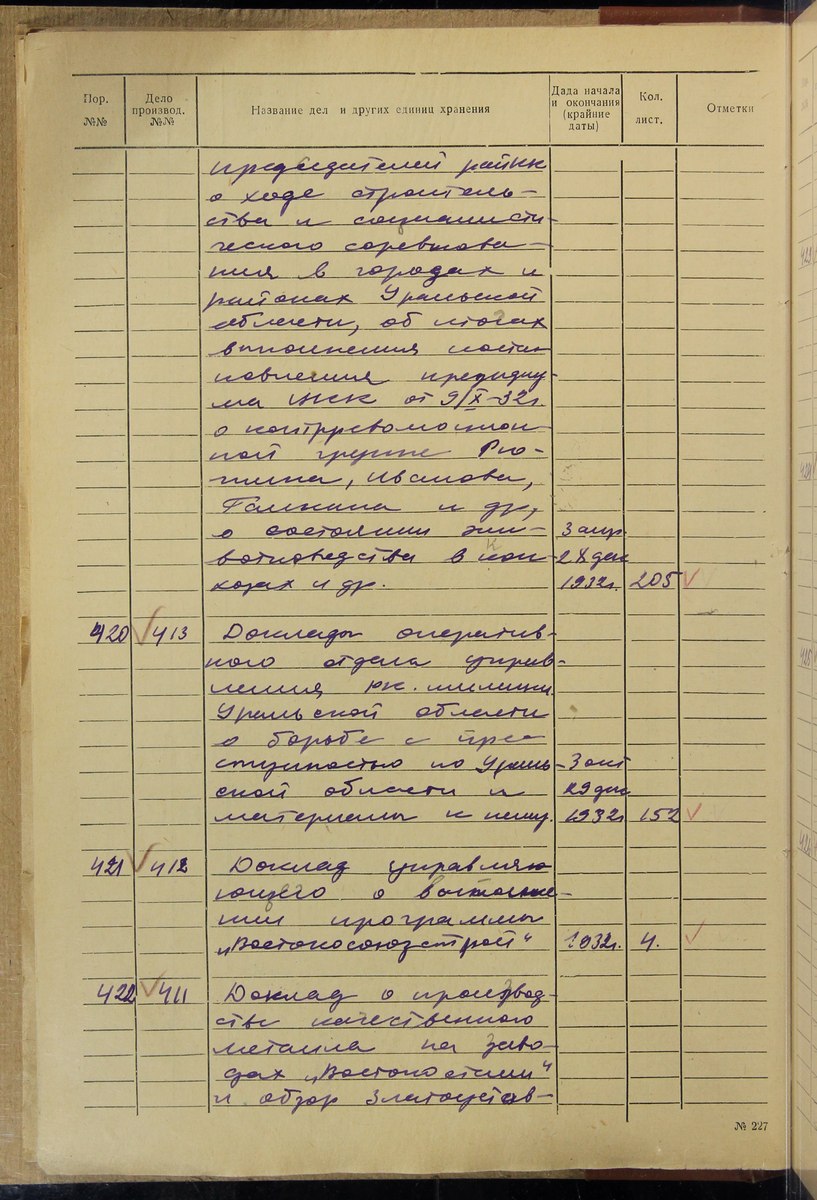 Пор. №№
Дело производ. №№
Название дел и других единиц хранения
Дада начала и окончания (крайние даты)
Кол. лист.
Отметки
председателей райик
о ходе строитель-
ства и социалисти-
ческого соревнова-
ния в городах и
районах Уральской
области, об итогах
выполнения поста-
новления президиу-
ма ЦКК от 9/X-32г.
о контрреволюцион
ной группе Рю-
тина, Иванова,
Галкина и др,
о состоянии жи- 3 апр.
вотноводства в кол- 28 дек
хозах и др. 1932г. 205
420 413 Доклады оператив-
ного отдела управ-
ления рк. милиции
Уральской области
о борьбе с пре-
ступностью по Ураль- 3 окт
ской области и 29 дек
материалы к нему. 1932г 152
421 412 Доклад управляю
ющего о выполне-
нии программы
„Востокосоюзстрой“ 1932г. 4.
422 411 Доклад о производ-
стве качественного
металла на заво-
дах „Востокостали“
и обзор Златоустов-
№ 227